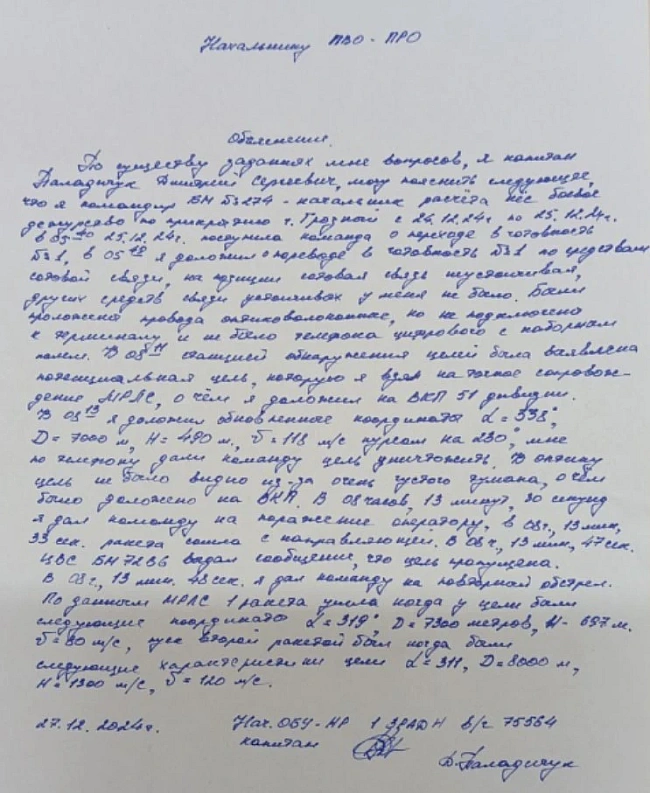 Начальнику ПВО-ПРО
Объяснение.
По существу заданных мне вопросов, я капитан
Паладичук Дмитрий Сергеевич, могу пояснить следующее,
что я командир БМ №274 - начальник расчёта нёс боевое
дежурство по прикрытию г. Грозный с 24.12.24г по 25.12.24г.
в 05 25.12.24г. поступила команда о переходе в готовность
№1, в 05 я доложил о переводе в готовность №1 по средствам
сотовой связи, на позиции сотовая связь неустойчивая,
других средств связи устойчивых у меня не было. Были
проложены провода оптиковолоконные, но не подключено
к терминалу и не было телефона цифрового с наборным
полем. В 08 11 станцией обнаружения целей была выявлена
потенциальная цель, которую я взял на точное сопровож-
дение МРЛС, о чём я доложил на ВКП 51 дивизии.
В 08 13 я доложил обновленные координаты α = 338°,
D = 7000 м, H = 490 м, υ = 118 м/с курсом на 230°, мне
по телефону дали команду цель уничтожить. В оптику
цель не было видно из-за очень густого тумана, о чём
было доложено на ВКП. В 08 часов, 13 минут, 30 секунд
я дал команду на поражение оператору, в 08 ч, 13 мин,
33 сек. ракета сошла с направляющей. В 08 ч, 13 мин, 47 сек.
ЦВС БМ 72В6 выдал сообщение, что цель пропущена.
В 08 ч, 13 мин. 48 сек. я дал команду на повторный обстрел.
По данным МРЛС 1 ракета ушла когда у цели были
следующие координаты α = 319°, D = 7300 метров, H - 697 м.
υ = 80 м/с, пуск второй ракетой был когда были
следующие характеристики цели α = 311, D = 8000 м,
H = 1300 м/с, υ = 120 м/с.
27.12.2024г. Нач. ОБУ-НР 1 ЗРАДН в/ч 75564
капитан Д. Паладичук